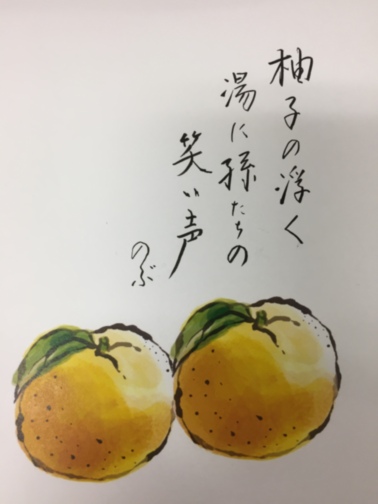 柚子の浮く
湯に孫たちの
笑い声
のぶ